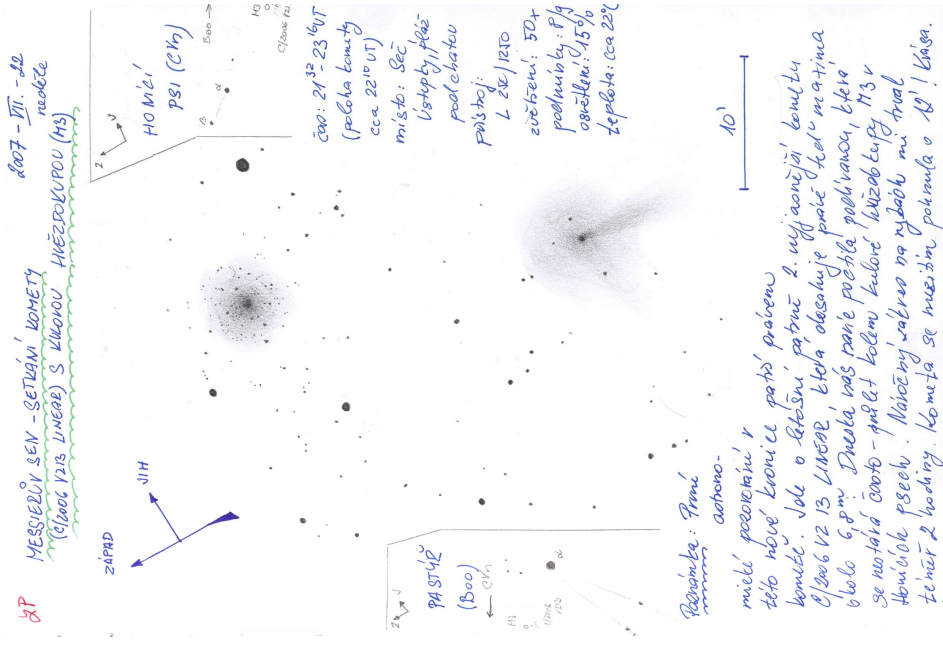 MESSIERŮV SEN - SETKÁNÍ KOMETY
(C/2006 VZ13 LINEAR) S KULOVOU HVĚZDOKUPOU (M3)
2007 - VII. - 22
neděle
ZÁPAD
JIH
HONÍCÍ
PSI (CVn)
Z
J
BOO →
β
α
M3
C/2006 VZ13
čas: 21³² - 23¹⁶ UT
(poloha komety
cca 22¹⁰ UT)
místo: Seč
Ústupky, pláž
pod chatou
přístroj:
L 250/1250
zvětšení: 50x
podmínky: P/g
osvětlení: 15%
teplota: cca 22°C
10'
PASTÝŘ
(BOO)
← CVn
Z
J
M3
C/2006
VZ13
α
Poznámka: První
astrono-
mické pozorování v
této nové kronice patří právem
kometě. Jde o letošní patrně 2. nejjasnější kometu
C/2006 VZ 13 LINEAR, která dosahuje právě teď v maxima
okolo 6,8m. Dneska nás navíc poctila podívanou, která
se nestává často - průlet kolem kulové hvězdokupy M3 v
Honících psech! Náročný zákres na nějž mi trval
téměř 2 hodiny. Kometa se mezitím pohnula o 12'! Krása.